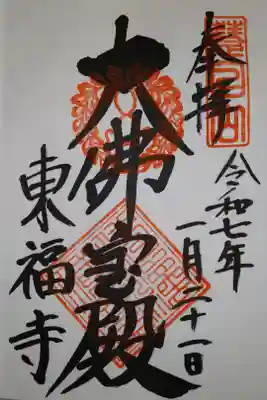 奉拝
令和七年
一月二十一日
大佛宝殿
東福寺